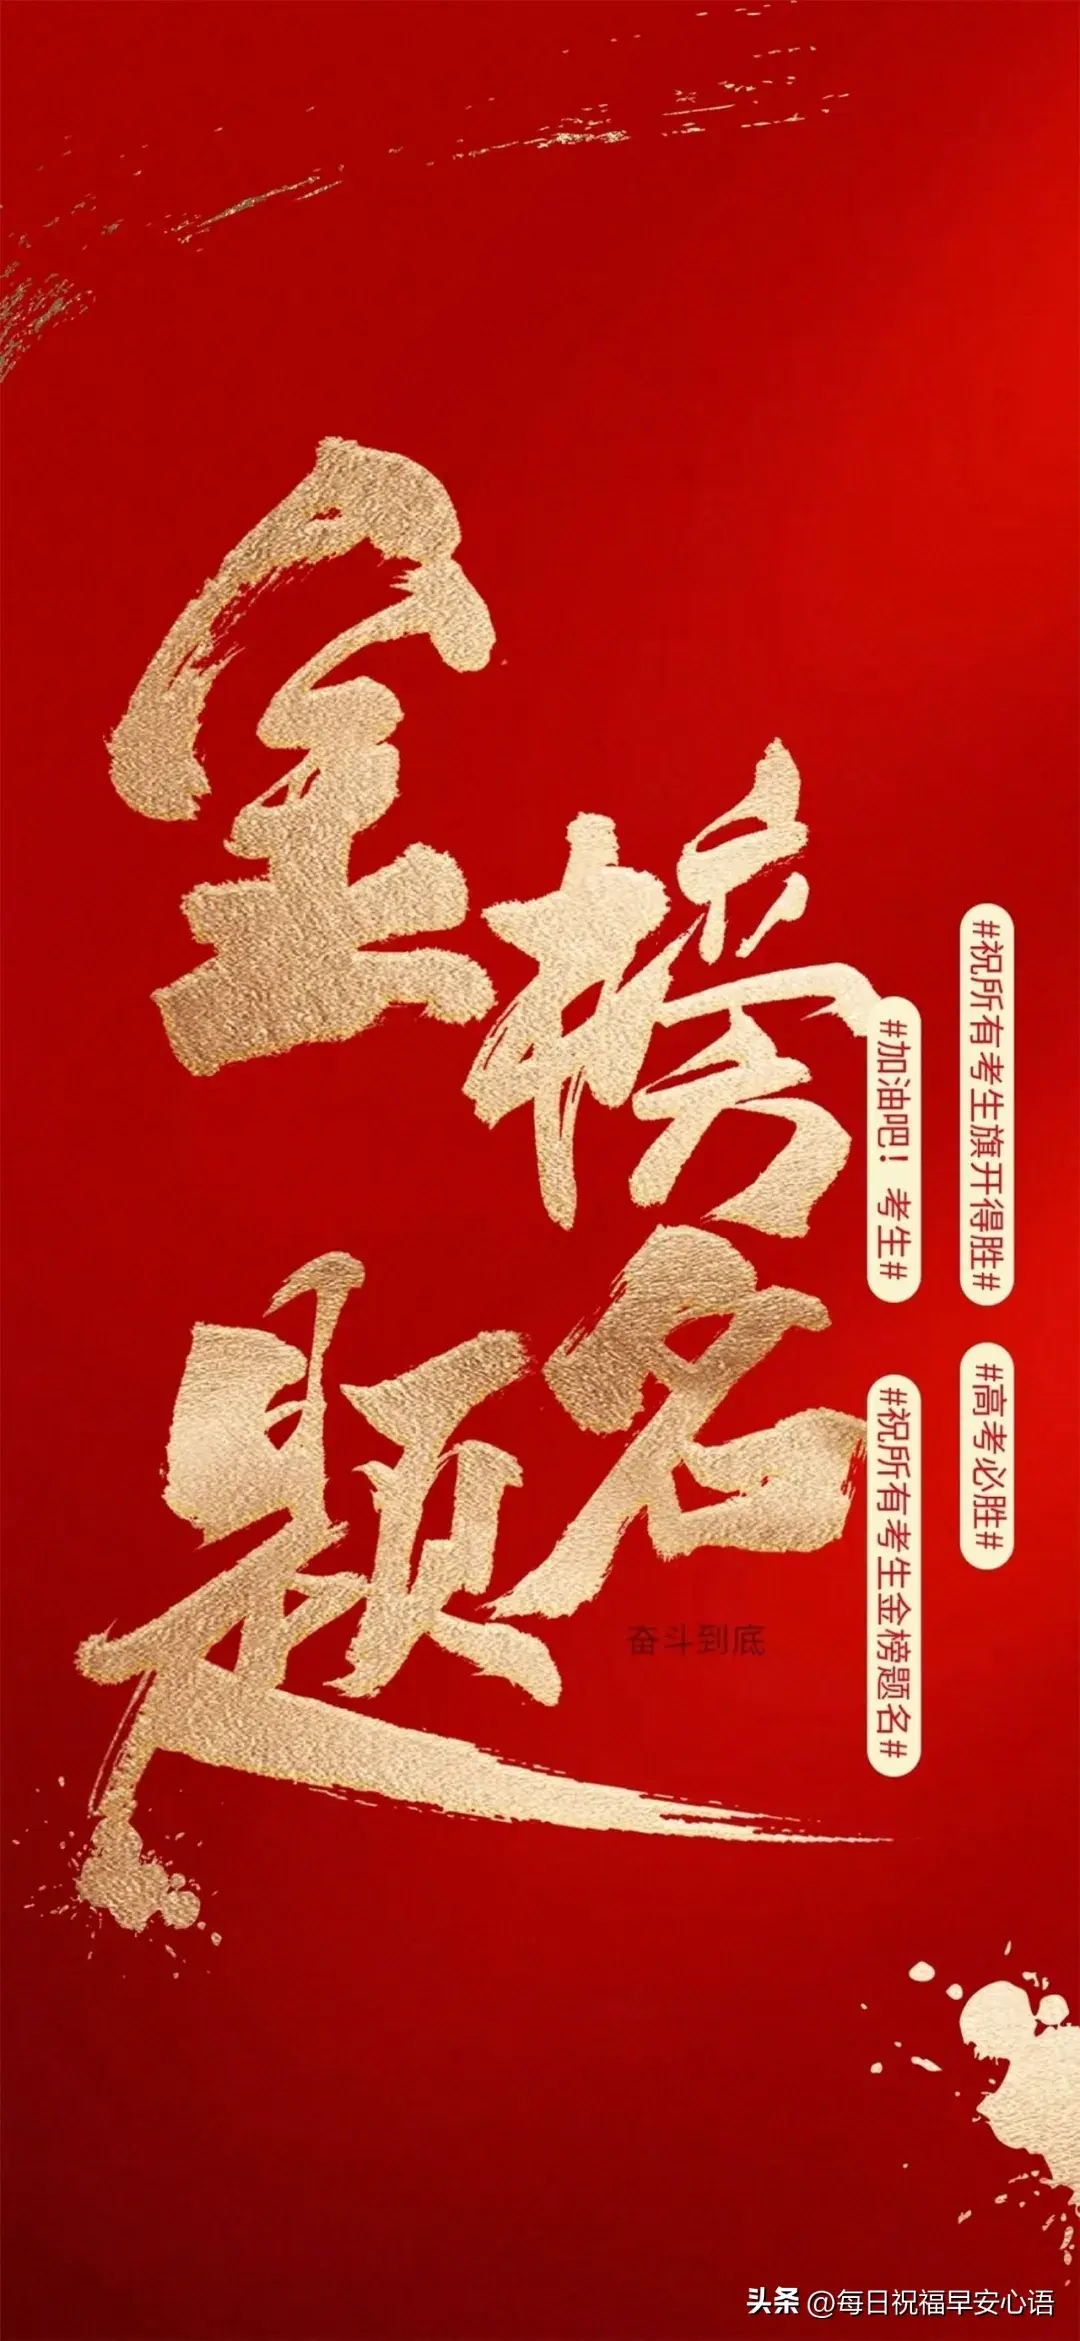 金榜
题名
奋斗到底
#祝所有考生旗开得胜#
#高考必胜#
#加油吧！考生#
#祝所有考生金榜题名#
头条 @每日祝福早安心语